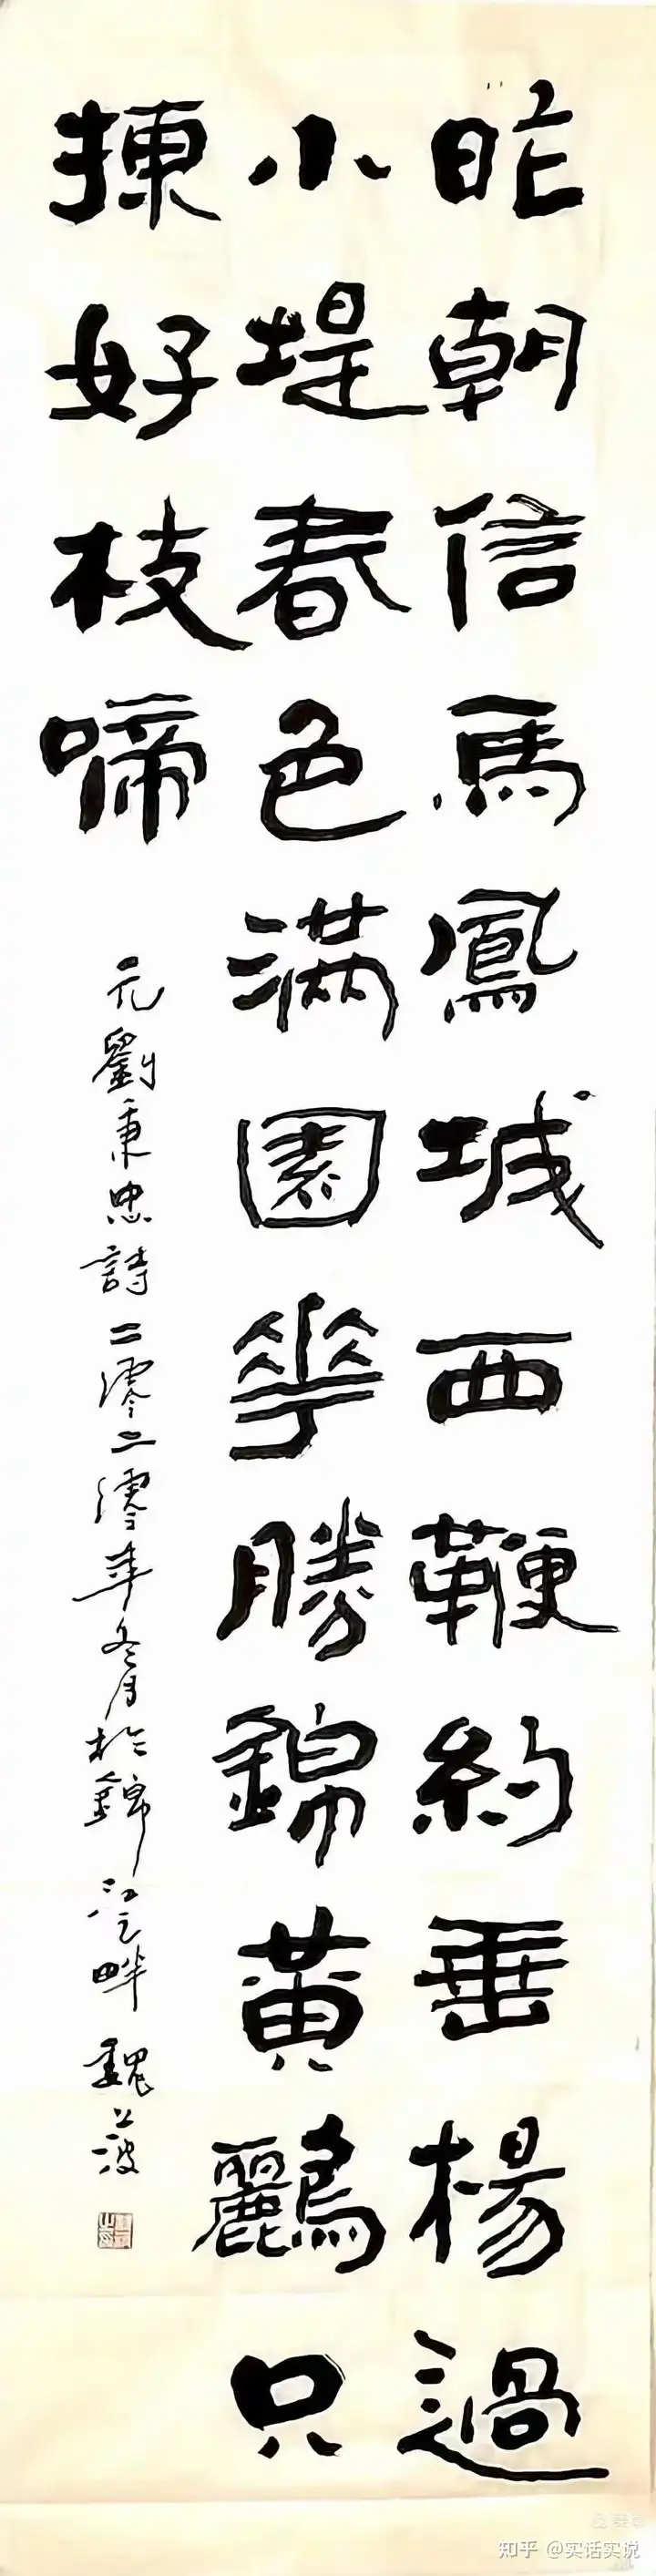 昨朝信馬鳳城西鞭約垂楊過
小堤春色满園華勝錦黃鸝只
揀好枝啼
元劉秉忠詩二零二零年冬月於錦江之畔 魏
知乎 @实话实说